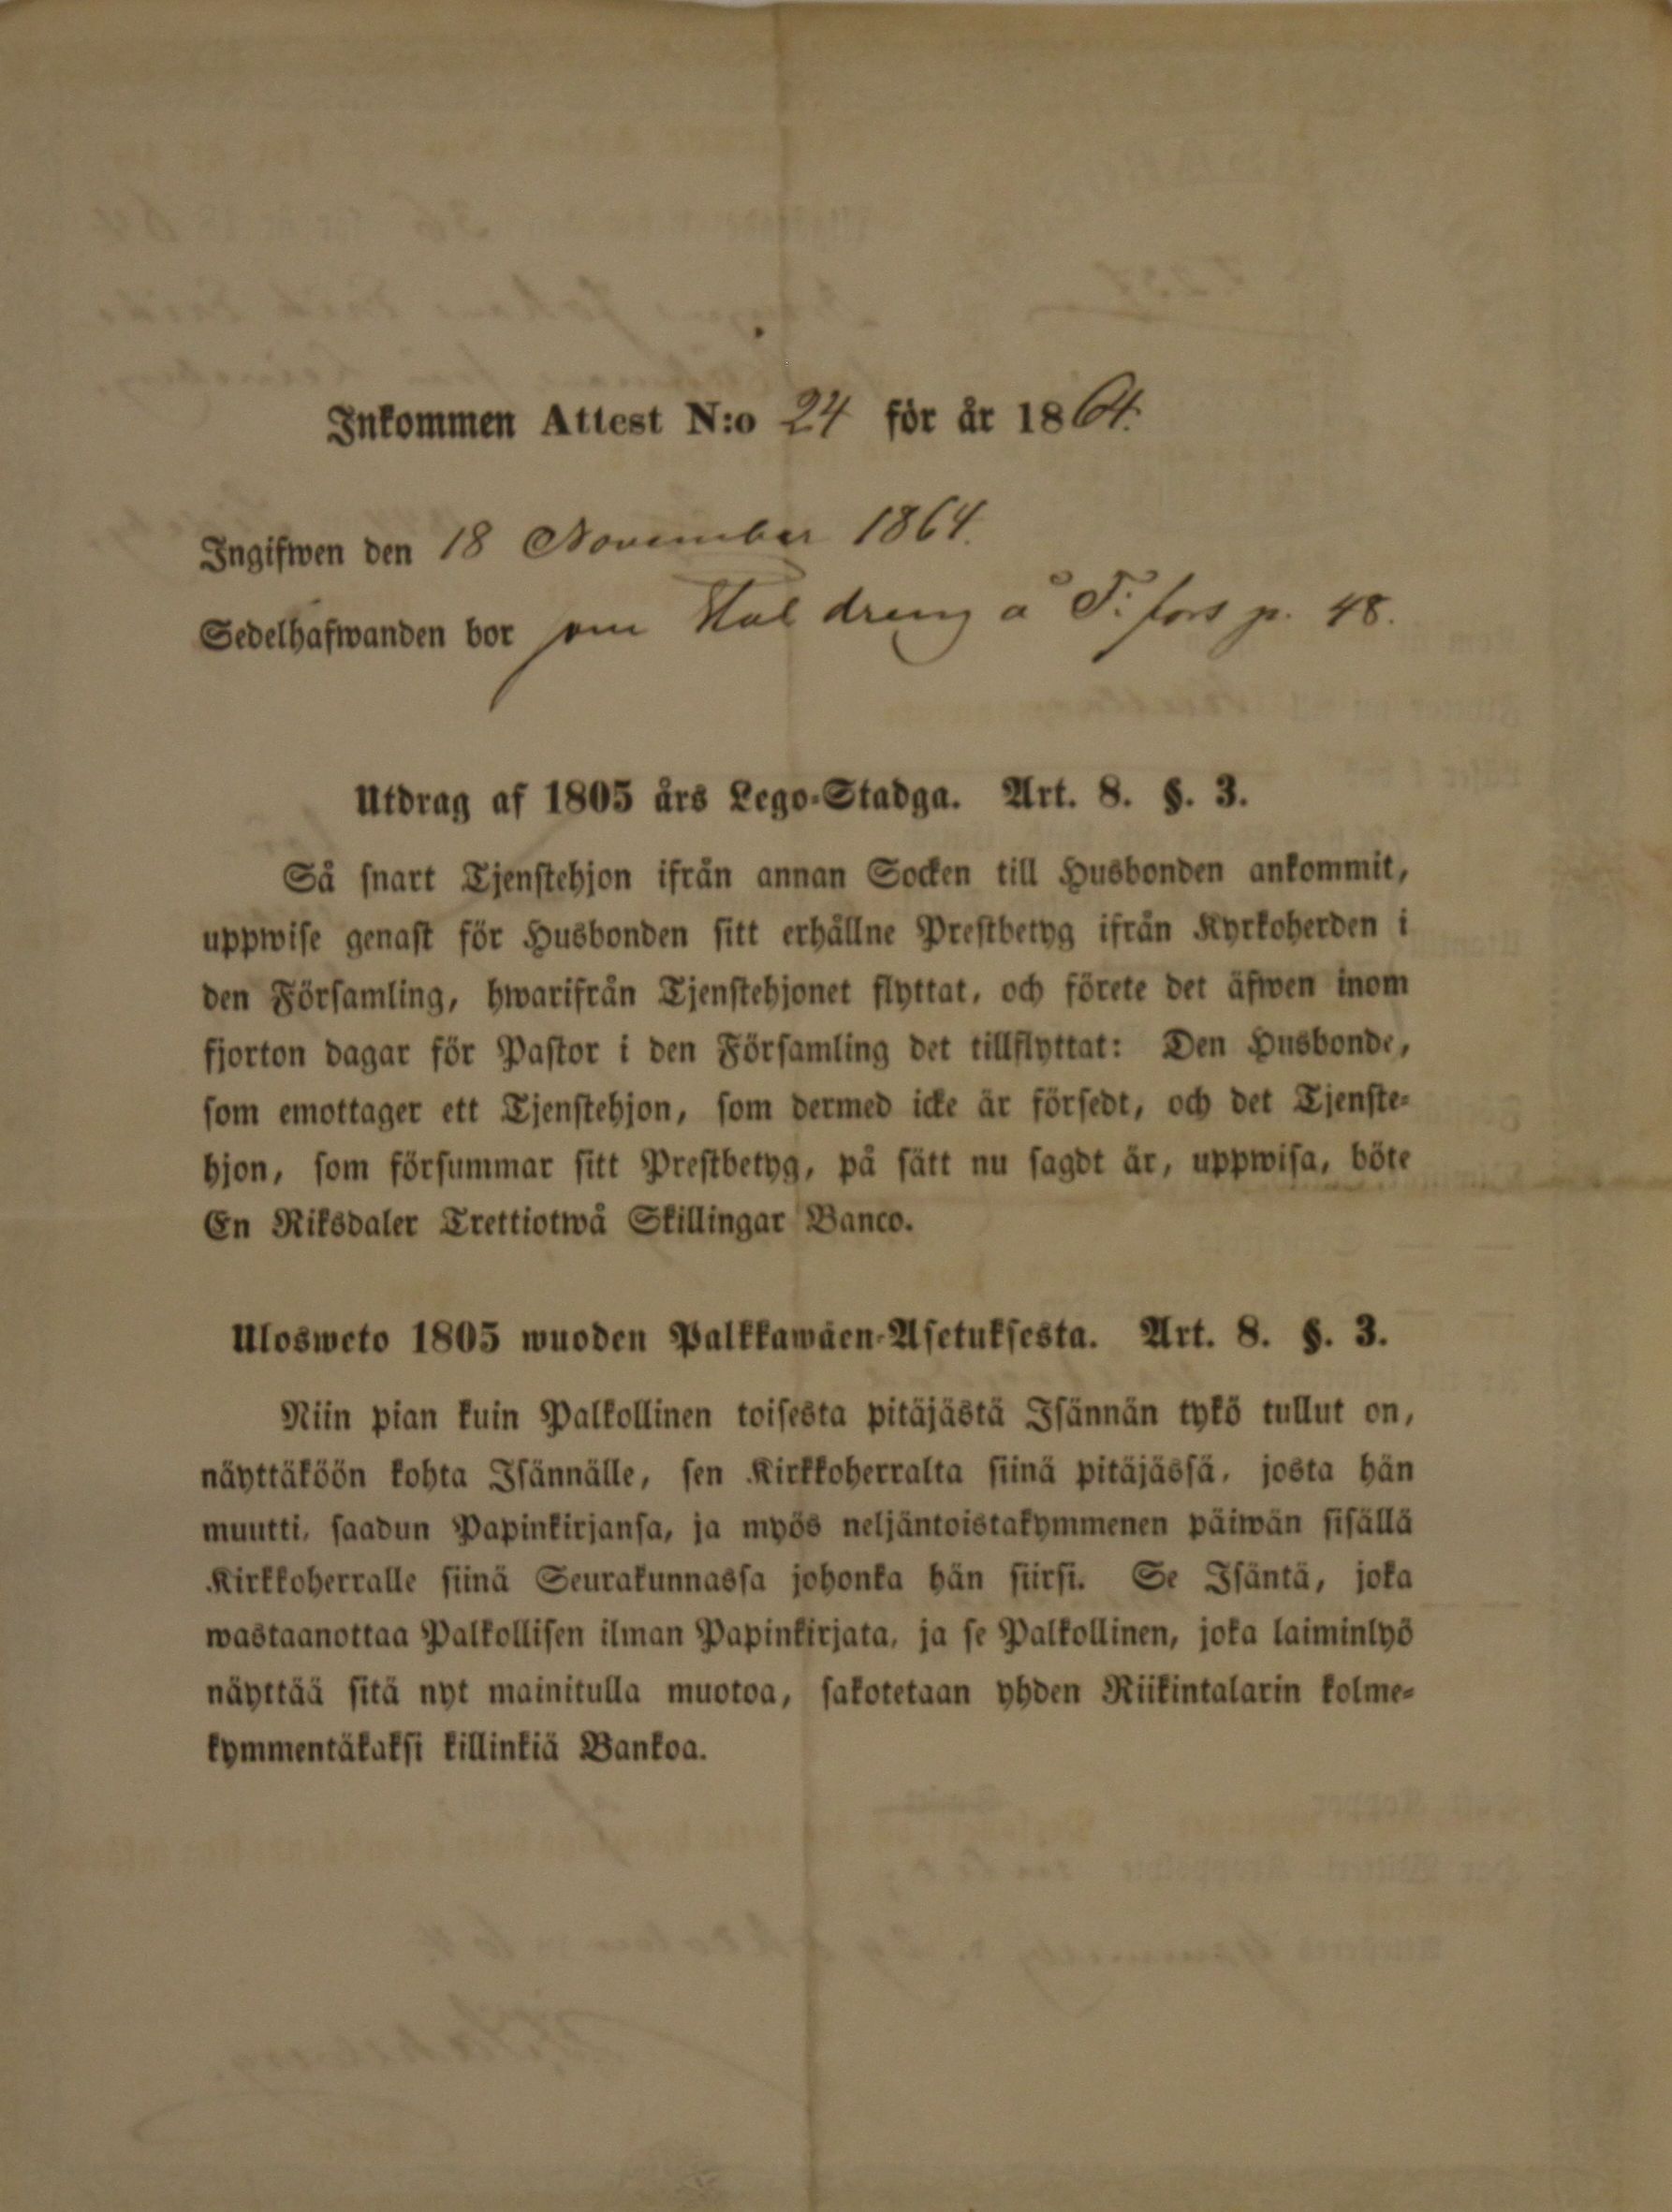 Inkommen Attest N:o 24 för år 1864.
Ingifwen den 18 November 1864.
Sedelhafwanden bor som Stal dreng å T: fors p. 48.
Utdrag af 1805 års Lego-Stadga. Art. 8. §. 3.
Så snart Tjenstehjon ifrån annan Socken till Husbonden ankommit,
uppwise genast för Husbonden sitt erhållne Prestbetyg ifrån Kyrkoherden i
den Församling, hwarifrån Tjenstehjonet flyttat, och förete det äfwen inom
fjorton dagar för Pastor i den Församling det tillflyttat: Den Husbonde,
som emottager ett Tjenstehjon, som dermed icke är försedt, och det Tjenste-
hjon, som försummar sitt Prestbetyg, på sätt nu sagdt är, uppwisa, böte
En Riksdaler Trettiotwå Skillingar Banco.
Ulosweto 1805 wuoden Palkkawäen-Asetuksesta. Art. 8. §. 3.
Niin pian kuin Palkollinen toisesta pitäjästä Isännän tykö tullut on,
näyttäköön kohta Isännälle, sen Kirkkoherralta siinä pitäjässä, josta hän
muutti, saadun Papinkirjansa, ja myös neljäntoistakymmenen päiwän sisällä
Kirkkoherralle siinä Seurakunnassa johonka hän siirsi. Se Isäntä, joka
wastaanottaa Palkollisen ilman Papinkirjata, ja se Palkollinen, joka laiminlyö
näyttää sitä nyt mainitulla muotoa, sakotetaan yhden Riikintalarin kolme-
kymmentäkaksi killinkiä Bankoa.